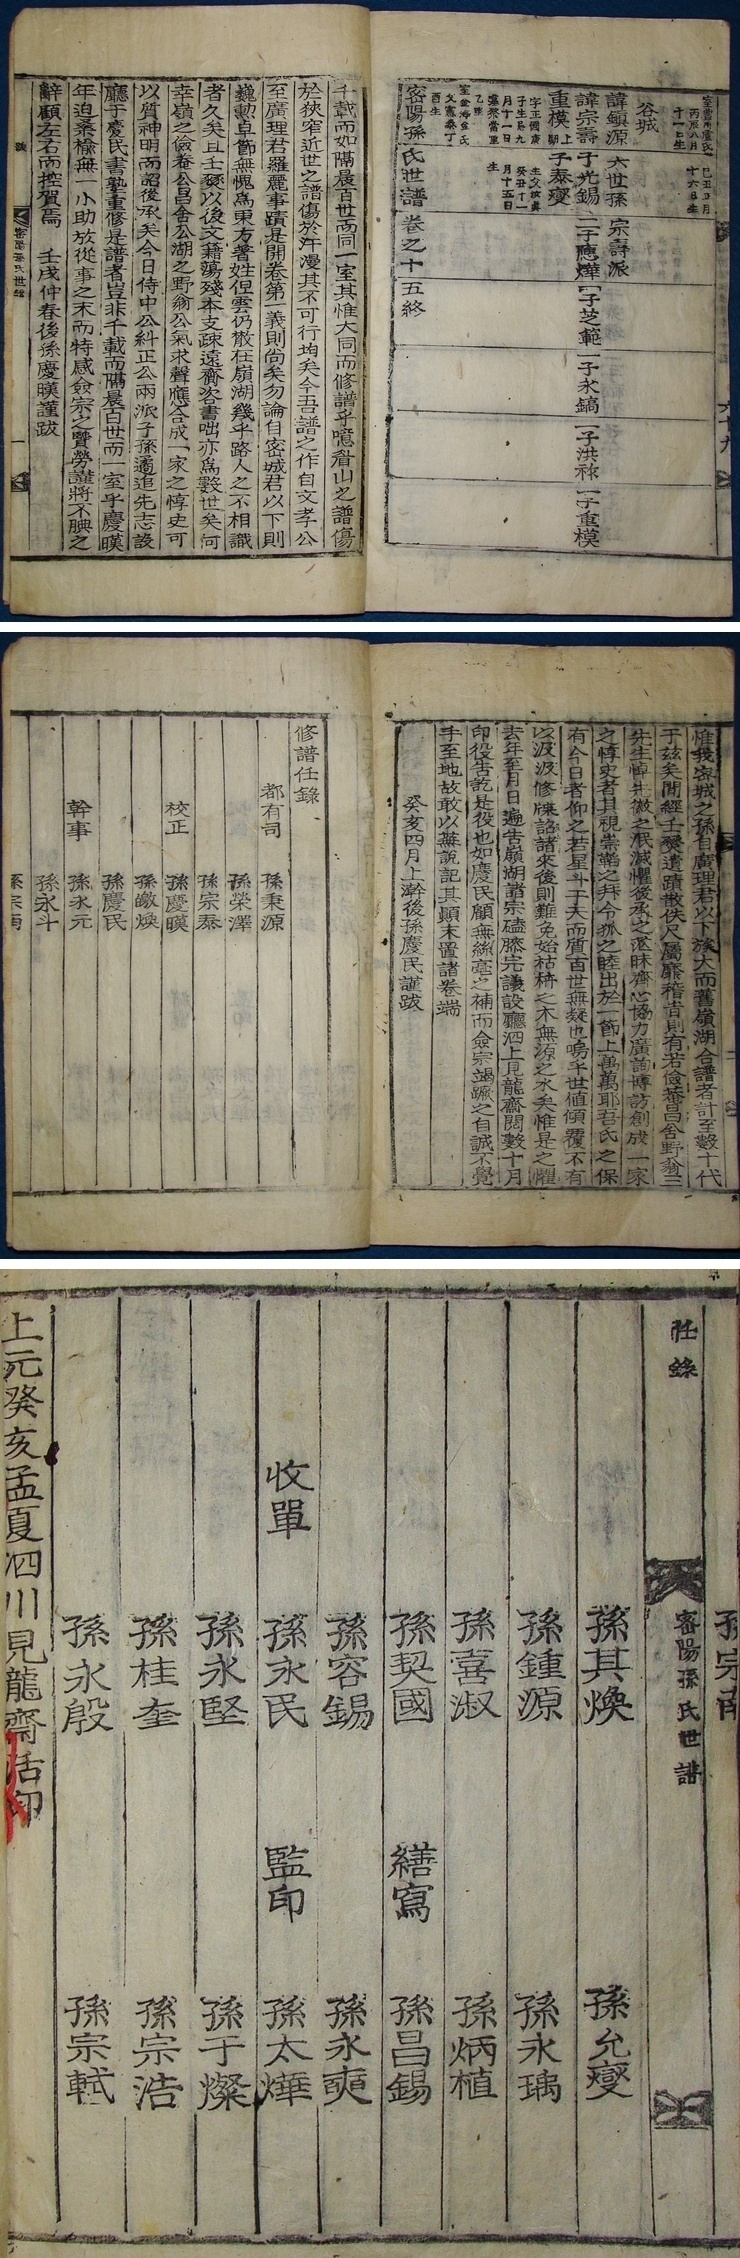 丙辰八月
十一日生
己丑正月
十六日生
谷城
諱鎭源 六世孫 宗壽派
諱宗壽 子光錫 一子應燁 一子芝範 一子永鎬 一子洪祚 一子重模
重模 子泰燮
密陽孫氏世譜卷之十五終
六十九
千載而如隔晨百世而同一室其惟大同而修譜乎噫眉山之譜傷
於狹窄近世之譜傷於汗漫其不可行均矣今吾譜之作自文孝公
至廣理君羅麗事蹟是開卷第一義則尙矣勿論自密城君以下則
巍勳卓節無愧爲東方著姓但雲仍散在嶺湖幾乎路人之不相識
者久矣且壬燹以後文籍蕩殘本支疎遠齎咨書咄亦爲數世矣何
幸嶺之儉巷公昌舍公湖之野翁公氣求聲應合成一家之惇史可
以質神明而詔後承矣今日侍中公糾正公兩派子孫遹追先志設
廳于慶民書塾重修是譜者豈非千載而隔晨百世而一室乎慶暎
年迫桑楡無一小助放從事之末而特感僉宗之賢勞謹將不腆之
辭顧左右而控贊焉 壬戌仲春後孫慶暎謹跋
密陽孫氏世譜
惟我密城之孫自廣理君以下族大而舊嶺湖合譜者計至數十代
于玆矣間經壬燹遺蹟散佚尺屬靡稽昔則有若儉巷昌舍野翁三
先生悼先徽之泯滅懼後承之湛昧齊心協力廣詢博訪創成一家
之惇史者其視崇韜之拜令狐之睦出於一節上萬萬耶吾氏之保
有今日者仰之若星斗于天而質百世無疑也嗚乎世値傾覆不有
以汲汲修牒詔諸來後則難免始枯榾之木無源之水矣惟是之懼
去年至月日遍告嶺湖諸宗磕膝完議設廳泗上見龍齋閱數十月
印役告訖是役也如慶民顧無絲毫之補而僉宗竭蹶之自誠不覺
手至地故敢以蕪說記其顚末置諸卷端
癸亥四月上澣後孫慶民謹跋
修譜任錄
都有司 孫秉源
孫榮澤
孫宗泰
校正 孫慶暎
孫皦煥
孫慶民
幹事 孫永元
孫永斗
孫宗甫
孫宗甫
任錄
密陽孫氏世譜
孫其煥 孫允燮
孫鍾源 孫永瑀
孫喜淑 孫炳植
孫契國 繕寫 孫昌錫
孫容錫 孫永奭
收單 孫永民 監印 孫太燁
孫永堅 孫于燦
孫桂奎 孫宗浩
孫永殷 孫宗軾
上元癸亥孟夏泗川見龍齋活印